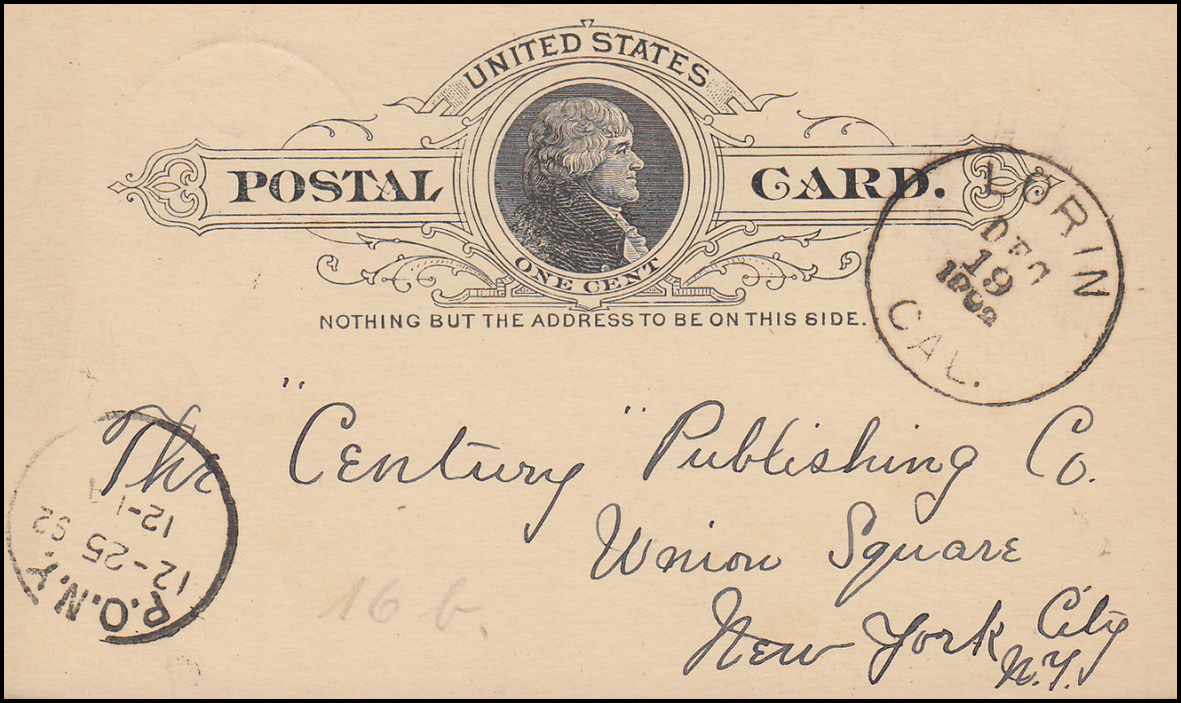 UNITED STATES
POSTAL CARD.
ONE CENT
NOTHING BUT THE ADDRESS TO BE ON THIS SIDE.
LORIN
DEC
19
1892
CAL.
The "Century" Publishing Co.
Union Square
New York City
N.Y.
P.O.N.Y.
12-25
92
16 b.